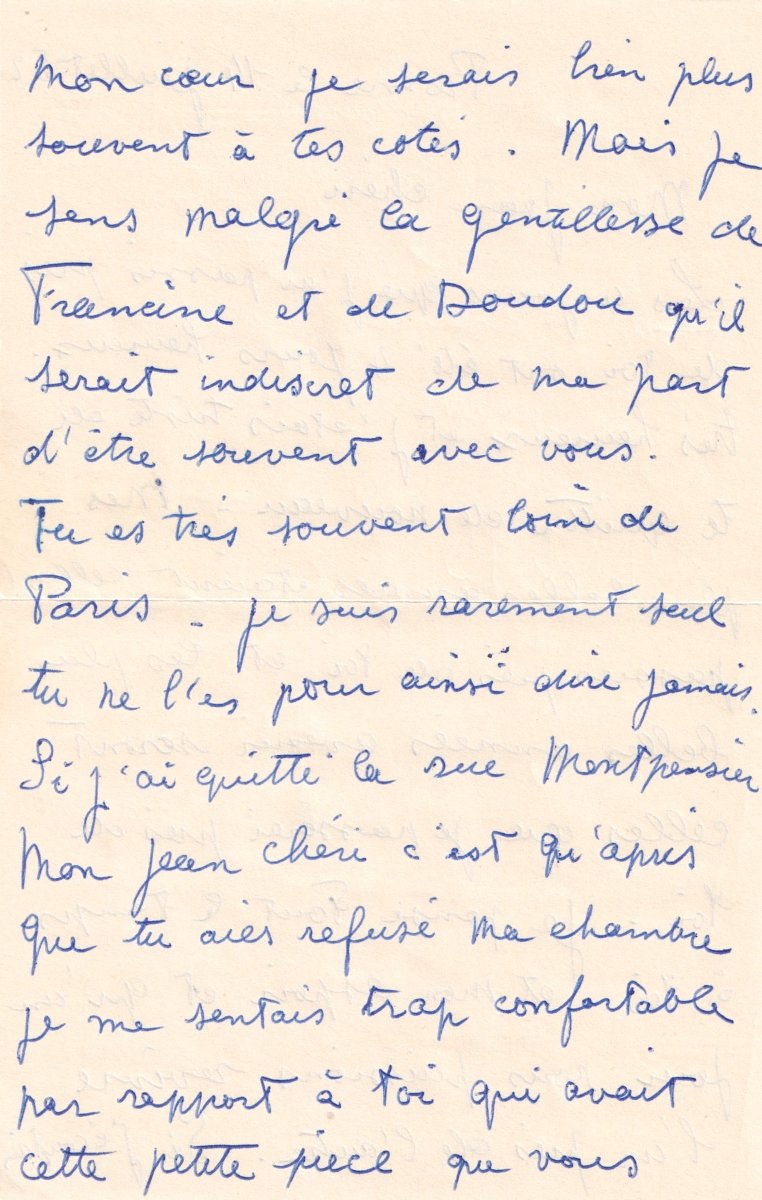 mon cœur je serais bien plus
souvent à tes cotés. Mais je
sens malgré la gentillesse de
Francine et de Doudou qu'il
serait indiscret de ma part
d'être souvent avec vous.
Tu es très souvent loin de
Paris - je suis rarement seul
tu ne l'es pour ainsi dire jamais.
Si j'ai quitté la rue Montpensier
Mon Jean chéri c'est qu'après
que tu aies refusé ma chambre
je me sentais trop confortable
par rapport à toi qui avait
cette petite pièce que vous